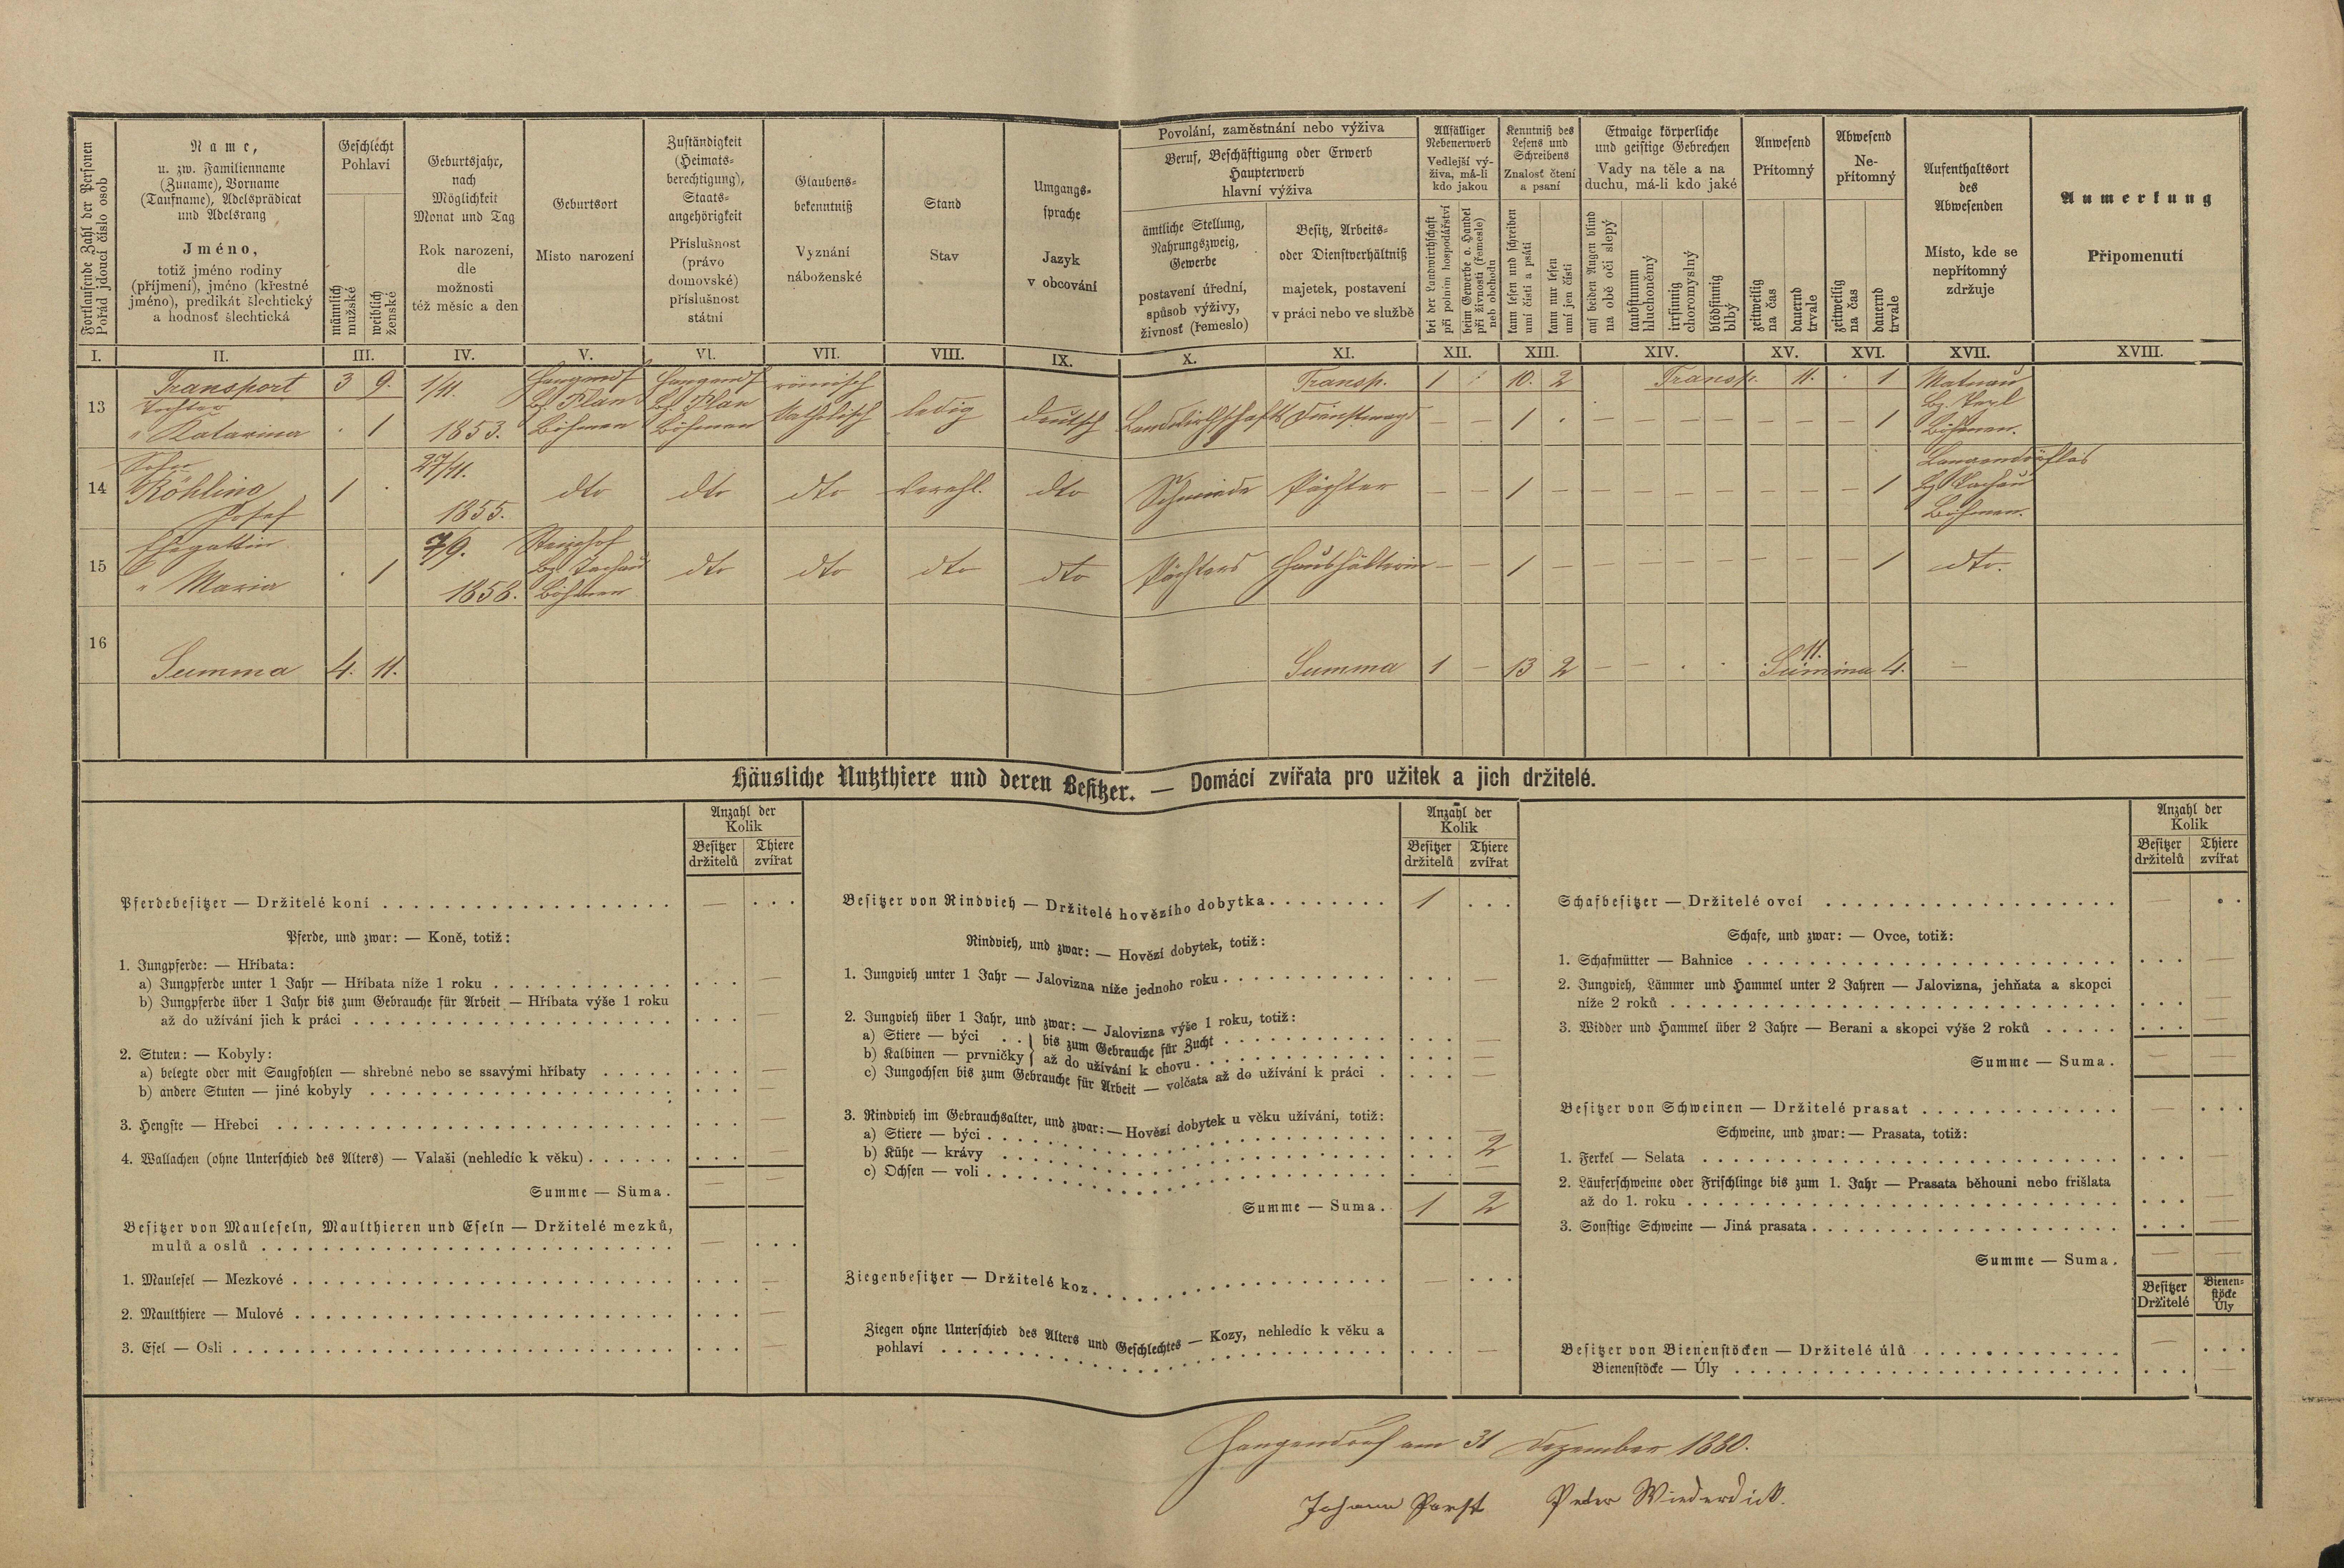 Fortlaufende Zahl der Personen
Pořád jdoucí číslo osob
Name,
u. zw. Familienname
(Zuname), Vorname
(Taufname), Adelsprädicat
und Adelsrang
Jméno,
totiž jméno rodiny
(příjmení), jméno (křestné
jméno), predikát šlechtický
a hodnosť šlechtická
Geschlecht
Pohlaví
männlich
mužské
weiblich
ženské
Geburtsjahr,
nach
Möglichkeit
Monat und Tag
Rok narození,
dle
možnosti
též měsíc a den
Geburtsort
Místo narození
Zuständigkeit
(Heimats-
berechtigung),
Staats-
angehörigkeit
Příslušnost
(právo
domovské)
příslušnost
státní
Glaubens-
bekenntniß
Vyznání
náboženské
Stand
Stav
Umgangs-
sprache
Jazyk
v obcování
Povolání, zaměstnání nebo výživa
Beruf, Beschäftigung oder Erwerb
Haupterwerb
hlavní výživa
ämtliche Stellung,
Nahrungszweig,
Gewerbe
postavení úřední,
spůsob výživy,
živnosť (řemeslo)
Besitz, Arbeits-
oder Dienstverhältniß
majetek, postavení
v práci nebo ve službě
Allfälliger
Nebenerwerb
Vedlejší vý-
živa, má-li
kdo jakou
bei der Landwirthschaft
při polním hospodářství
beim Gewerbe o. Handel
při živnosti (řemesle)
neb obchodu
Kenntniß des
Lesens und
Schreibens
Znalosť čtení
a psaní
kann lesen und schreiben
umí čísti a psáti
kann nur lesen
umí jen čísti
Etwaige körperliche
und geistige Gebrechen
Vady na těle a na
duchu, má-li kdo jaké
auf beiden Augen blind
na obě oči slepý
taubstumm
hluchoněmý
irrsinnig
choromyslný
blödsinnig
blbý
Anwesend
Přítomný
zeitweilig
na čas
dauernd
trvale
Abwesend
Ne-
přítomný
zeitweilig
na čas
dauernd
trvale
Aufenthaltsort
des
Abwesenden
Místo, kde se
nepřítomný
zdržuje
Anmerkung
Připomenutí
I. II. III. IV. V. VI. VII. VIII. IX. X. XI. XII. XIII. XIV. XV. XVI. XVII. XVIII.
Transport 3 9. Transp. 1 10. 2 Transp. 11. 1
13 Tochter 1/11. Bz. Plan Bz. Plan römisch
" Katarina . 1 1853. Böhmen Böhmen katholisch ledig deutsch Landwirthschafts Dienstmagd — — 1 . — — — — — — — 1 Böhmen.
14 Sohn 27/11.
Röhling 1 . dto dto dto verehl. dto Schmiede Pächter — — 1 — — — — — — — — 1 Bz. Tachau
Josef 1855. Böhmen.
15 Ehegattin 7/9. Bz. Tachau
" Maria . 1 1858. Böhmen dto dto dto dto Pächters Haushälterin — — 1 — — — — — — — — 1 dto.
16
Summa 4. 11. Summa 1 — 13 2 — — . . 11. Summa 4. —
Häusliche Nutzthiere und deren Besitzer. — Domácí zvířata pro užitek a jich držitelé.
Anzahl der
Kolik
Besitzer
držitelů
Thiere
zvířat
Pferdebesitzer — Držitelé koní — . . .
Pferde, und zwar: — Koně, totiž:
1. Jungpferde: — Hříbata:
a) Jungpferde unter 1 Jahr — Hříbata níže 1 roku . . . —
b) Jungpferde über 1 Jahr bis zum Gebrauche für Arbeit — Hříbata výše 1 roku
až do užívání jich k práci . . . —
2. Stuten: — Kobyly:
a) belegte oder mit Saugfohlen — shřebné nebo se ssavými hříbaty . . . —
b) andere Stuten — jiné kobyly . . . —
3. Hengste — Hřebci . . . —
4. Wallachen (ohne Unterschied des Alters) — Valaši (nehledíc k věku) . . . —
Summe — Suma. — —
Besitzer von Mauleseln, Maulthieren und Eseln — Držitelé mezků,
mulů a oslů — . . .
1. Maulesel — Mezkové . . . —
2. Maulthiere — Mulové . . . —
3. Esel — Osli . . . —
Anzahl der
Kolik
Besitzer
držitelů
Thiere
zvířat
Besitzer von Rindvieh — Držitelé hovězího dobytka 1 . . .
Rindvieh, und zwar: — Hovězí dobytek, totiž:
1. Jungvieh unter 1 Jahr — Jalovizna níže jednoho roku . . . —
2. Jungvieh über 1 Jahr, und zwar: — Jalovizna výše 1 roku, totiž:
a) Stiere — býci . . } bis zum Gebrauche für Zucht . . . —
b) Kalbinen — prvničky } až do užívání k chovu . . . —
c) Jungochsen bis zum Gebrauche für Arbeit — volčata až do užívání k práci . . . —
3. Rindvieh im Gebrauchsalter, und zwar: — Hovězí dobytek u věku užívání, totiž:
a) Stiere — býci . . . —
b) Kühe — krávy . . . 2
c) Ochsen — voli . . . —
Summe — Suma. 1 2
Ziegenbesitzer — Držitelé koz — . . .
Ziegen ohne Unterschied des Alters und Geschlechtes — Kozy, nehledíc k věku a
pohlaví . . . —
Anzahl der
Kolik
Besitzer
držitelů
Thiere
zvířat
Schafbesitzer — Držitelé ovcí — . . .
Schafe, und zwar: — Ovce, totiž:
1. Schafmütter — Bahnice . . . —
2. Jungvieh, Lämmer und Hammel unter 2 Jahren — Jalovizna, jehňata a skopci
níže 2 roků . . . —
3. Widder und Hammel über 2 Jahre — Berani a skopci výše 2 roků . . . —
Summe — Suma. — —
Besitzer von Schweinen — Držitelé prasat — . . .
Schweine, und zwar: — Prasata, totiž:
1. Ferkel — Selata . . . —
2. Läuferschweine oder Frischlinge bis zum 1. Jahr — Prasata běhouni nebo frišlata
až do 1. roku . . . —
3. Sonstige Schweine — Jiná prasata . . . —
Summe — Suma. — —
Besitzer
Držitelé
Bienen-
stöcke
Úly
Besitzer von Bienenstöcken — Držitelé úlů — . . .
Bienenstöcke — Úly . . . —
am 31 Dezember 1880.
Johann Peter Wiederdick.